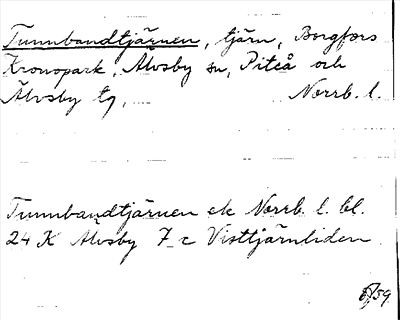 Tunnbandtjärnen, tjärn, Borgfors
Kronopark, Älvsby sn, Piteå och
Älvsby tg, Norrb. l.
Tunnbandtjärnen ek Norrb. l. bl.
24 K Älvsby 7-c Visttjärnliden